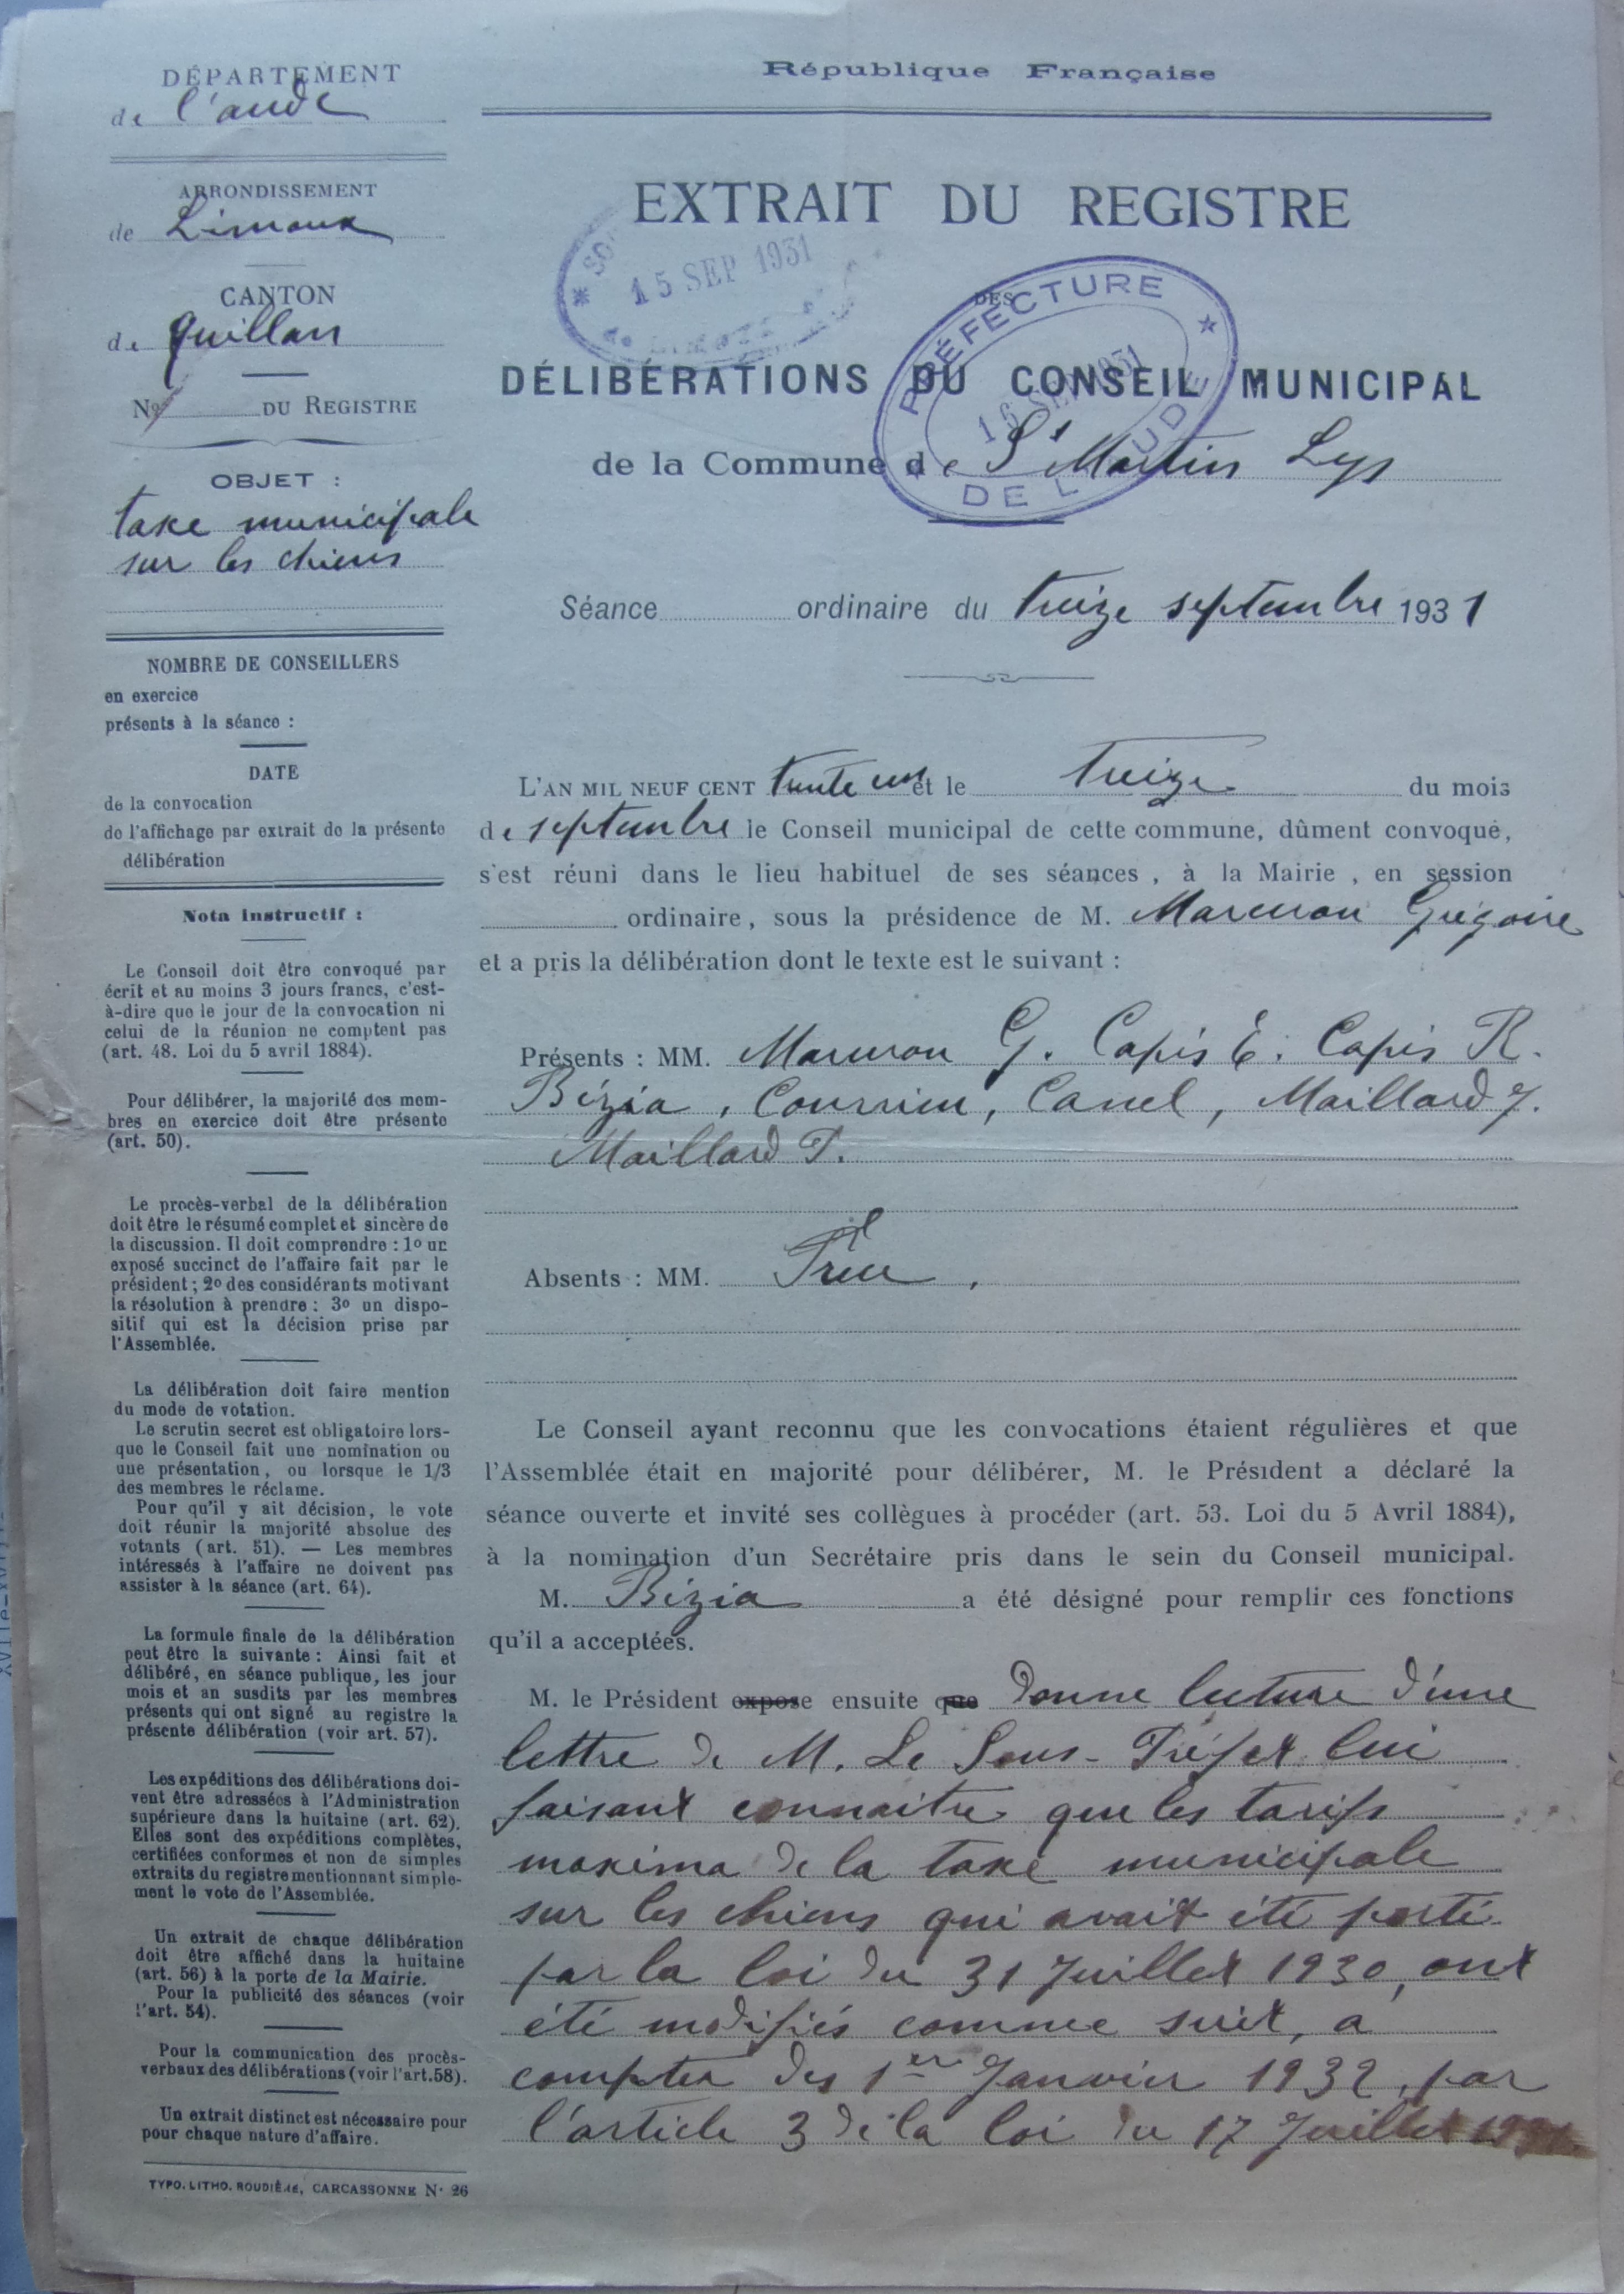 DÉPARTEMENT
de l'aude
ARRONDISSEMENT
de Limoux
CANTON
de Quillan
No DU REGISTRE
OBJET :
taxe municipale
sur les chiens
NOMBRE DE CONSEILLERS
en exercice
présents à la séance :
DATE
de la convocation
de l'affichage par extrait de la présente
délibération
Nota instructif :
Le Conseil doit être convoqué par
écrit et au moins 3 jours francs, c'est-
à-dire que le jour de la convocation ni
celui de la réunion ne comptent pas
(art. 48. Loi du 5 avril 1884).
Pour délibérer, la majorité des mem-
bres en exercice doit être présente
(art. 50).
Le procès-verbal de la délibération
doit être le résumé complet et sincère de
la discussion. Il doit comprendre : 1o un
exposé succinct de l'affaire fait par le
président ; 2o des considérants motivant
la résolution à prendre : 3o un dispo-
sitif qui est la décision prise par
l'Assemblée.
La délibération doit faire mention
du mode de votation.
Le scrutin secret est obligatoire lors-
que le Conseil fait une nomination ou
une présentation, ou lorsque le 1/3
des membres le réclame.
Pour qu'il y ait décision, le vote
doit réunir la majorité absolue des
votants (art. 51). — Les membres
intéressés à l'affaire ne doivent pas
assister à la séance (art. 64).
La formule finale de la délibération
peut être la suivante : Ainsi fait et
délibéré, en séance publique, les jour
mois et an susdits par les membres
présents qui ont signé au registre la
présente délibération (voir art. 57).
Les expéditions des délibérations doi-
vent être adressées à l'Administration
supérieure dans la huitaine (art. 62).
Elles sont des expéditions complètes,
certifiées conformes et non de simples
extraits du registre mentionnant simple-
ment le vote de l'Assemblée.
Un extrait de chaque délibération
doit être affiché dans la huitaine
(art. 56) à la porte de la Mairie.
Pour la publicité des séances (voir
l'art. 54).
Pour la communication des procès-
verbaux des délibérations (voir l'art. 58).
Un extrait distinct est nécessaire pour
pour chaque nature d'affaire.
TYPO. LITHO. ROUDIÈRE, CARCASSONNE N· 26
République Française
EXTRAIT DU REGISTRE
15 SEP 1931
DES
PRÉFECTURE
DE L'AUDE
16 SEP 1931
DÉLIBÉRATIONS DU CONSEIL MUNICIPAL
de la Commune de St Martin Lys
Séance ordinaire du treize septembre 1931
L'AN MIL NEUF CENT trente un et le treize du mois
de septembre le Conseil municipal de cette commune, dûment convoqué,
s'est réuni dans le lieu habituel de ses séances, à la Mairie, en session
ordinaire, sous la présidence de M. Marcerou Grégoire
et a pris la délibération dont le texte est le suivant :
Présents : MM. Marcerou G. Capis E. Capis R.
Bézia, Courrieu, Canel, Maillard J.
Maillard P.
Absents : MM.
Le Conseil ayant reconnu que les convocations étaient régulières et que
l'Assemblée était en majorité pour délibérer, M. le Président a déclaré la
séance ouverte et invité ses collègues à procéder (art. 53. Loi du 5 Avril 1884),
à la nomination d'un Secrétaire pris dans le sein du Conseil municipal.
M. Bézia a été désigné pour remplir ces fonctions
qu'il a acceptées.
M. le Président expose ensuite que donne lecture d'une
lettre de M. Le Sous-Préfet lui
faisant connaitre que les tarifs
maxima de la taxe municipale
sur les chiens qui avait été porté
par la loi du 31 Juillet 1930, ont
été modifiés comme suit, à
compter des 1er Janvier 1932, par
l'article 3 de la loi du 17 Juillet 1931